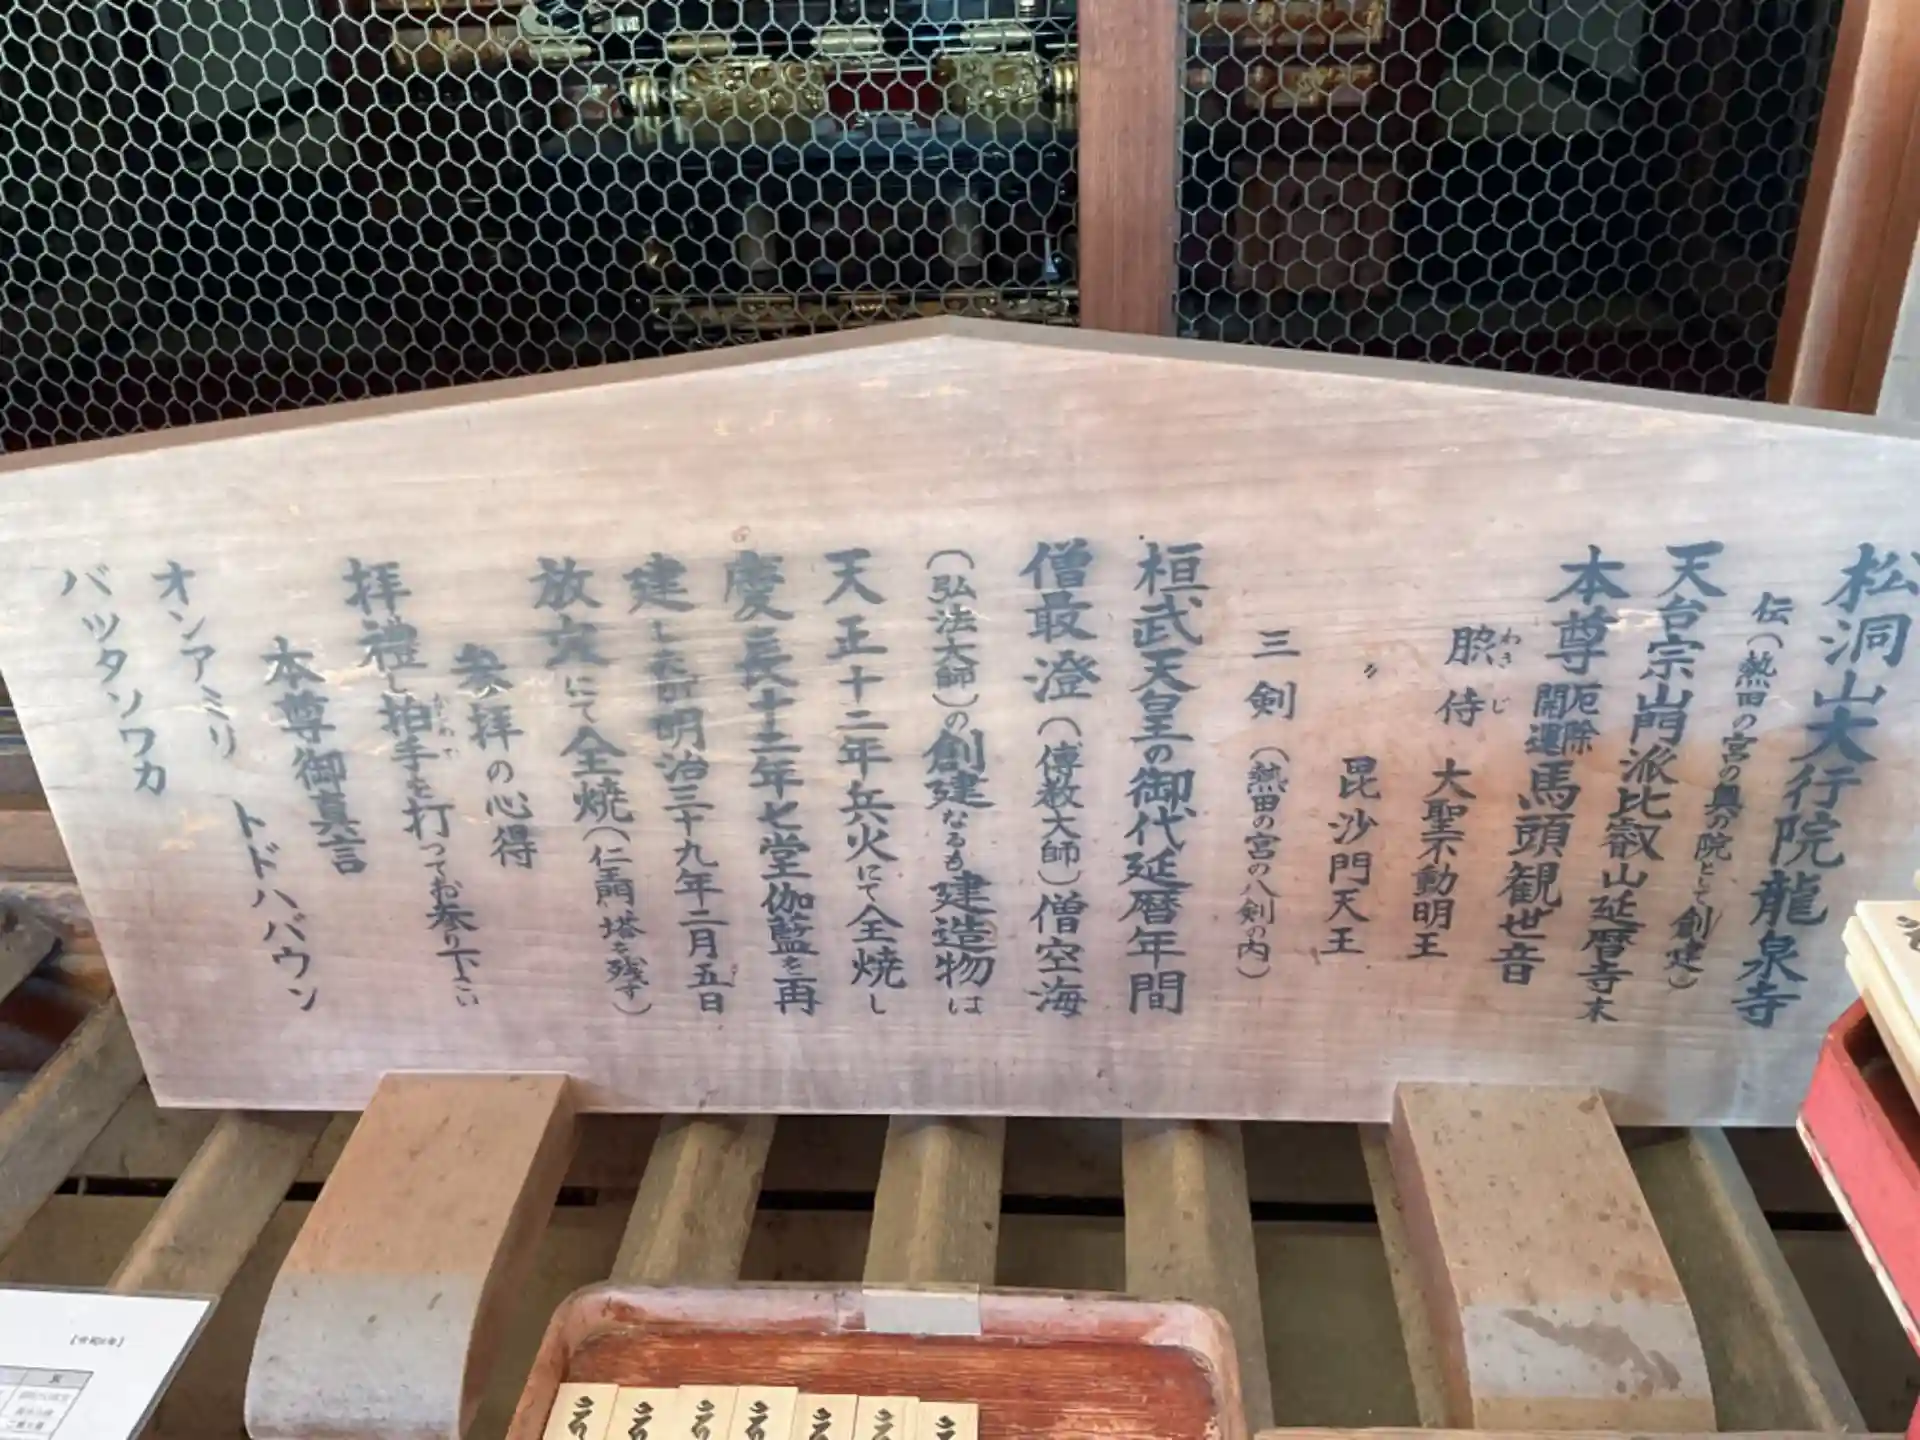 松洞山大行院龍泉寺
伝(熱田の宮の奥の院として創建)
天台宗山門派比叡山延暦寺末
本尊 厄除開運 馬頭観世音
脇侍 大聖不動明王
わきじ
〃 毘沙門天王
三剣(熱田の宮の八剣の内)
桓武天皇の御代延暦年間
僧最澄(傳教大師)僧空海
(弘法大師)の創建なるも建造物は
天正十二年兵火にて全焼し
慶長十二年七堂伽藍を再
建した 明治三十九年二月五日
放火にて全焼(仁王門 塔を残す)
参拝の心得
拝禮し拍手を打つてお参り下さい
かしわで
本尊御真言
オンアミリ トドハバウン
バッタソワカ